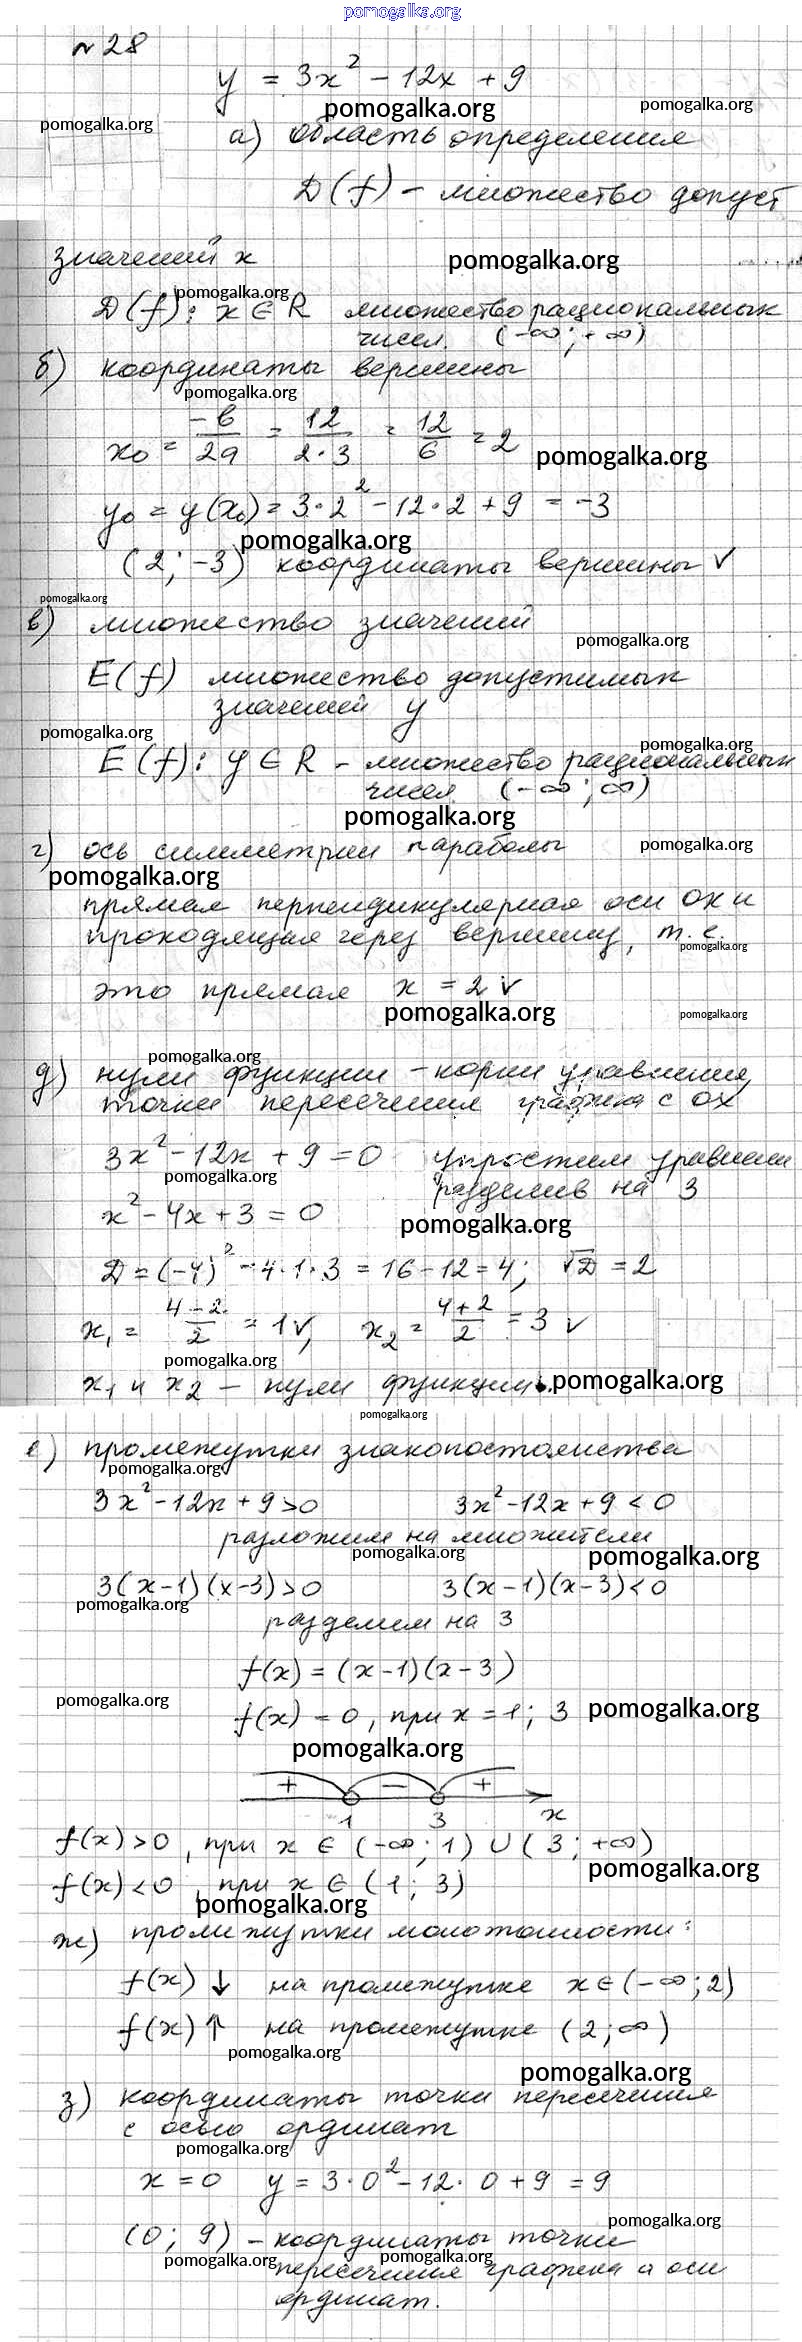 pomogalka.org
№28
y = 3x² - 12x + 9
pomogalka.org
pomogalka.org
pomogalka.org
а) область определения
D(f) - множество допуст
значений x
pomogalka.org
pomogalka.org
D(f): x ∈ R множество рациональных
чисел. (-∞; +∞)
б) координаты вершины
pomogalka.org
x₀ = -b/2a = 12/2·3 = 12/6 = 2
pomogalka.org
y₀ = y(x₀) = 3·2² - 12·2 + 9 = -3
pomogalka.org
(2; -3) координаты вершины √
pomogalka.org
в) множество значений
pomogalka.org
E(f) множество допустимых
значений y
pomogalka.org
pomogalka.org
E(f): y ∈ R - множество рациональных
чисел. (-∞; ∞)
pomogalka.org
г) ось симметрии параболы
pomogalka.org
pomogalka.org
прямая перпендикулярная оси ОХ и
проходящая через вершину, т.е.
pomogalka.org
это прямая x = 2 √
pomogalka.org
pomogalka.org
pomogalka.org
д) нули функции - корни уравнения,
точки пересечения графика с ох
3x² - 12x + 9 = 0 упростим уравнени
pomogalka.org
разделив на 3
x² - 4x + 3 = 0
pomogalka.org
D = (-4)² - 4·1·3 = 16 - 12 = 4; √D = 2
x₁ = 4-2/2 = 1 √, x₂ = 4+2/2 = 3 √
pomogalka.org
x₁ и x₂ - нули функции.
pomogalka.org
pomogalka.org
е) промежутки знакопостоянства
pomogalka.org
3x² - 12x + 9 > 0 3x² - 12x + 9 < 0
разложим на множители
pomogalka.org
pomogalka.org
3(x-1)(x-3) > 0 3(x-1)(x-3) < 0
pomogalka.org
разделим на 3
f(x) = (x-1)(x-3)
pomogalka.org
f(x) = 0, при x = 1; 3
pomogalka.org
pomogalka.org
+ - +
1 3 x
f(x) > 0, при x ∈ (-∞; 1) ∪ (3; +∞)
pomogalka.org
f(x) < 0, при x ∈ (1; 3)
pomogalka.org
ж) промежутки монотонности:
f(x) ↓ на промежутке x ∈ (-∞; 2)
f(x) ↑ на промежутке (2; ∞)
pomogalka.org
pomogalka.org
з) координаты точки пересечения
с осью ординат
pomogalka.org
x = 0 y = 3·0² - 12·0 + 9 = 9
pomogalka.org
(0; 9) - координаты точки
pomogalka.org
pomogalka.org
пересечения графика и оси
ординат.